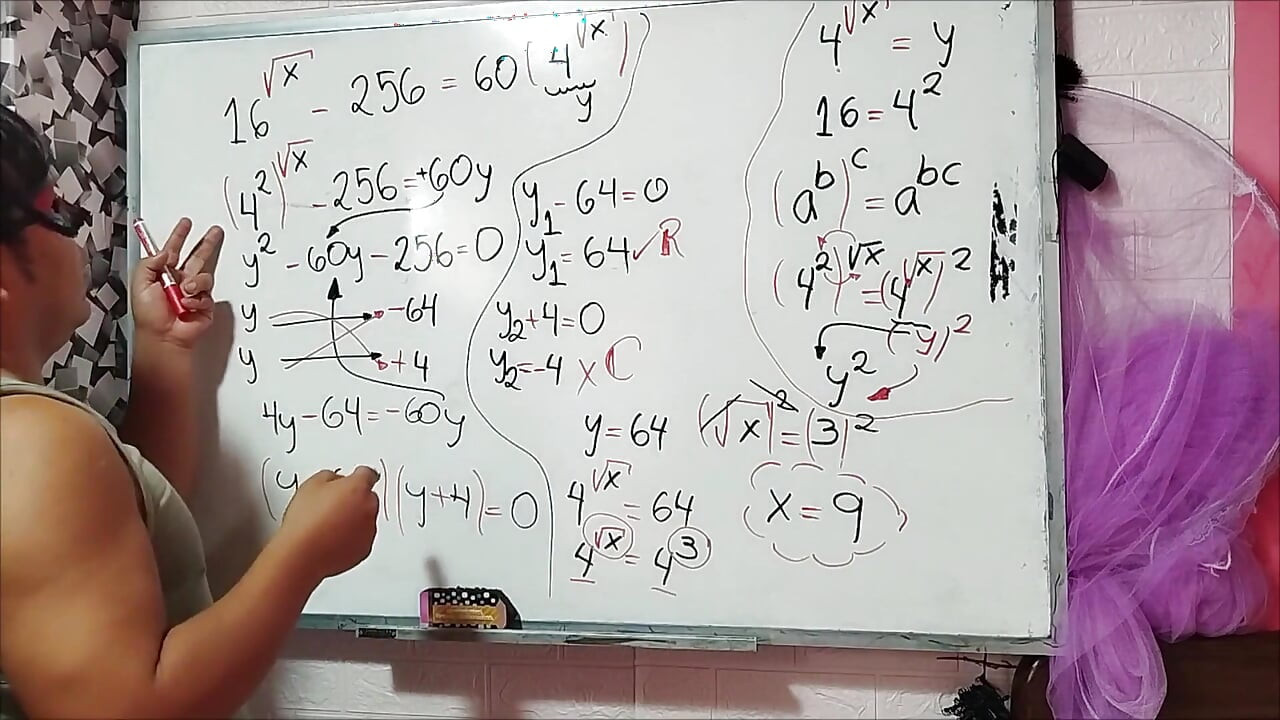 16^√x - 256 = 60(4^√x)
y
(4²)^√x - 256 = +60y
y² - 60y - 256 = 0
y -64
y +4
4y - 64 = -60y
(y )(y+4) = 0
y₁ - 64 = 0
y₁ = 64 ✓ R
y₂ + 4 = 0
y₂ = -4 x C
y = 64
4^√x = 64
4^√x = 4^3
(√x)² = (3)²
x = 9
4^√x = y
16 = 4²
(a^b)^c = a^bc
(4²)^√x = (4^√x)²
(y)²
y²